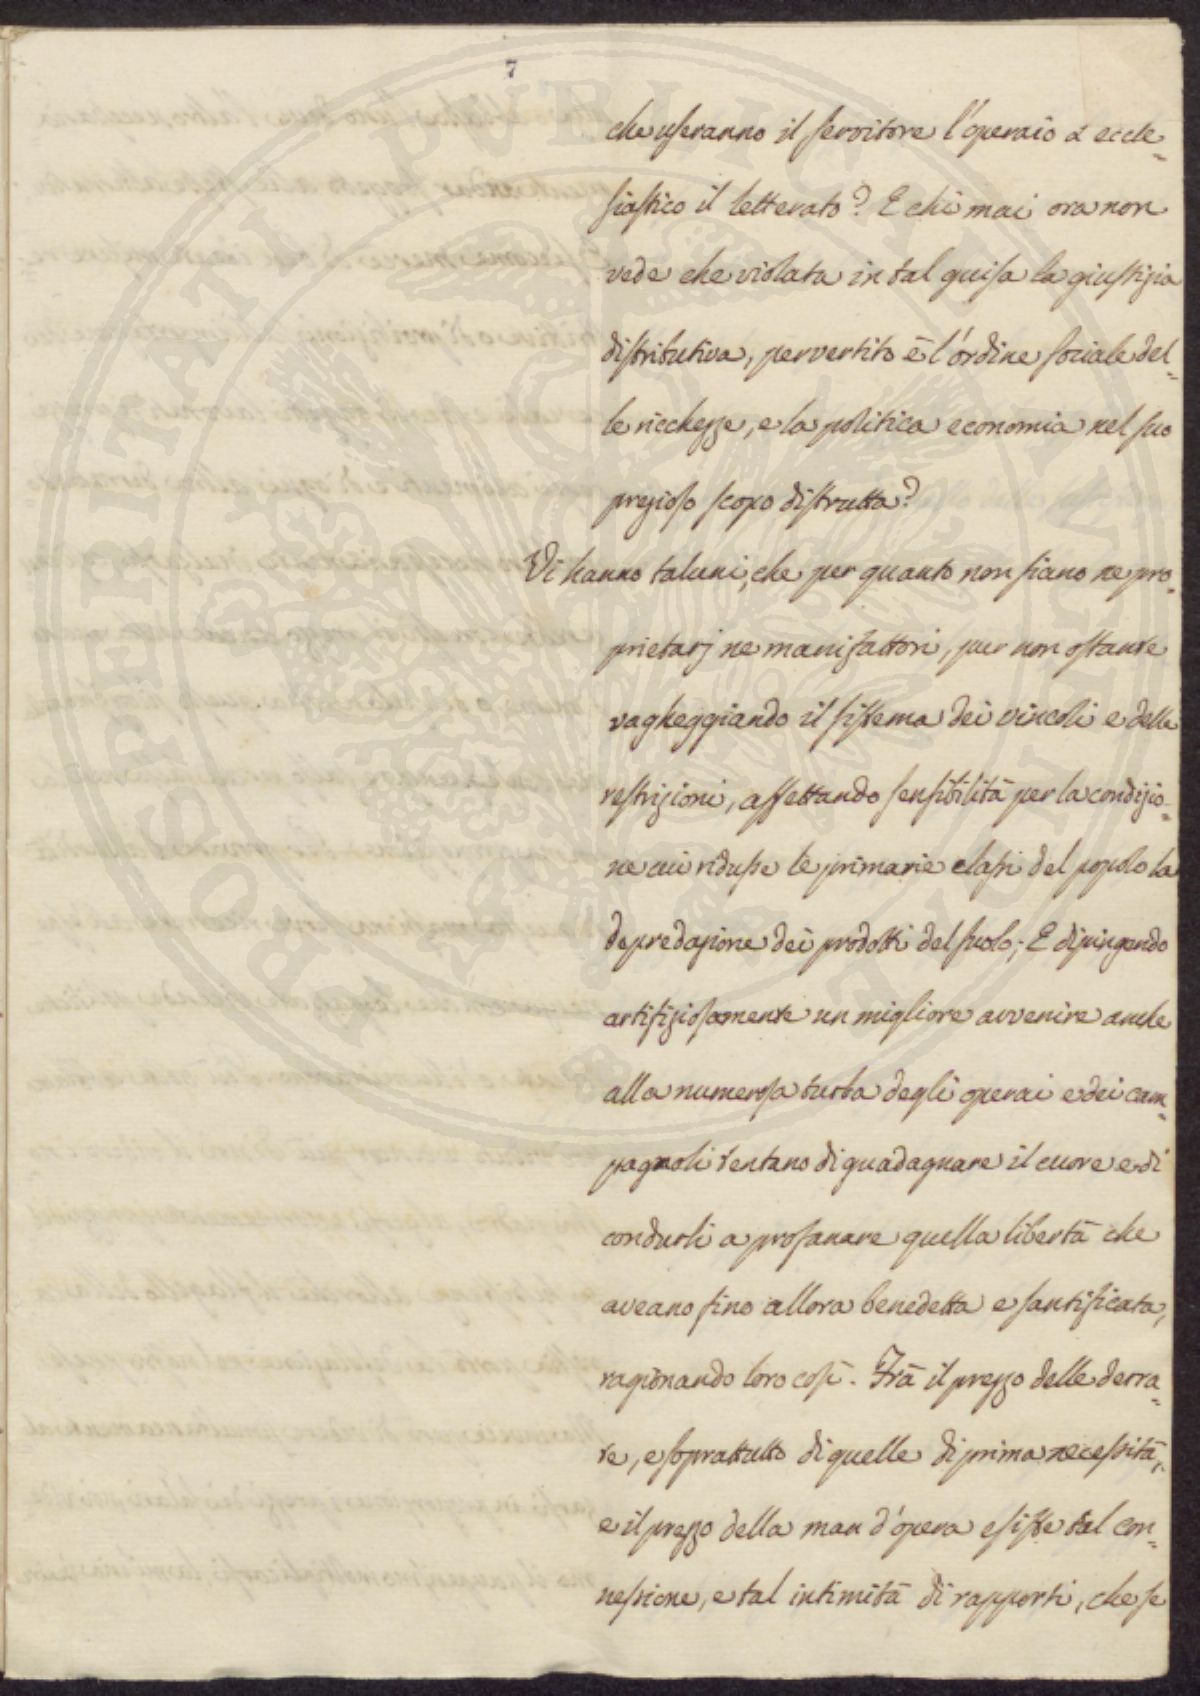 7
che useranno il servitore l'operaio l'eccle=
siastico il letterato? E chi mai ora non
vede che violata in tal guisa la giustizia
distributiva, pervertito è l'ordine sociale del=
le ricchezze, e la politica economia nel suo
prezioso scopo distrutta?
Vi hanno taluni, che per quanto non siano ne pro=
prietarj ne manifattori, pur non ostante
vagheggiando il sistema dei vincoli e delle
restrizioni, affettando sensibilità per la condizio=
ne cui ridusse le primarie classi del popolo la
depredazione dei prodotti del suolo; E dipingendo
artifiziosamente un migliore avvenire anche
alla numerosa turba degli operai e dei cam=
pagnoli tentano di guadagnare il cuore e di
condurli a profanare quella libertà che
aveano fino allora benedetta e santificata,
ragionando loro così. Frà il prezzo delle derra=
te, e soprattutto di quelle di prima necessità,
e il prezzo della man d'opera esiste tal con=
nessione, e tal intimità di rapporti, che se
PROSPERITATI PUBLICAE AUGENDAE